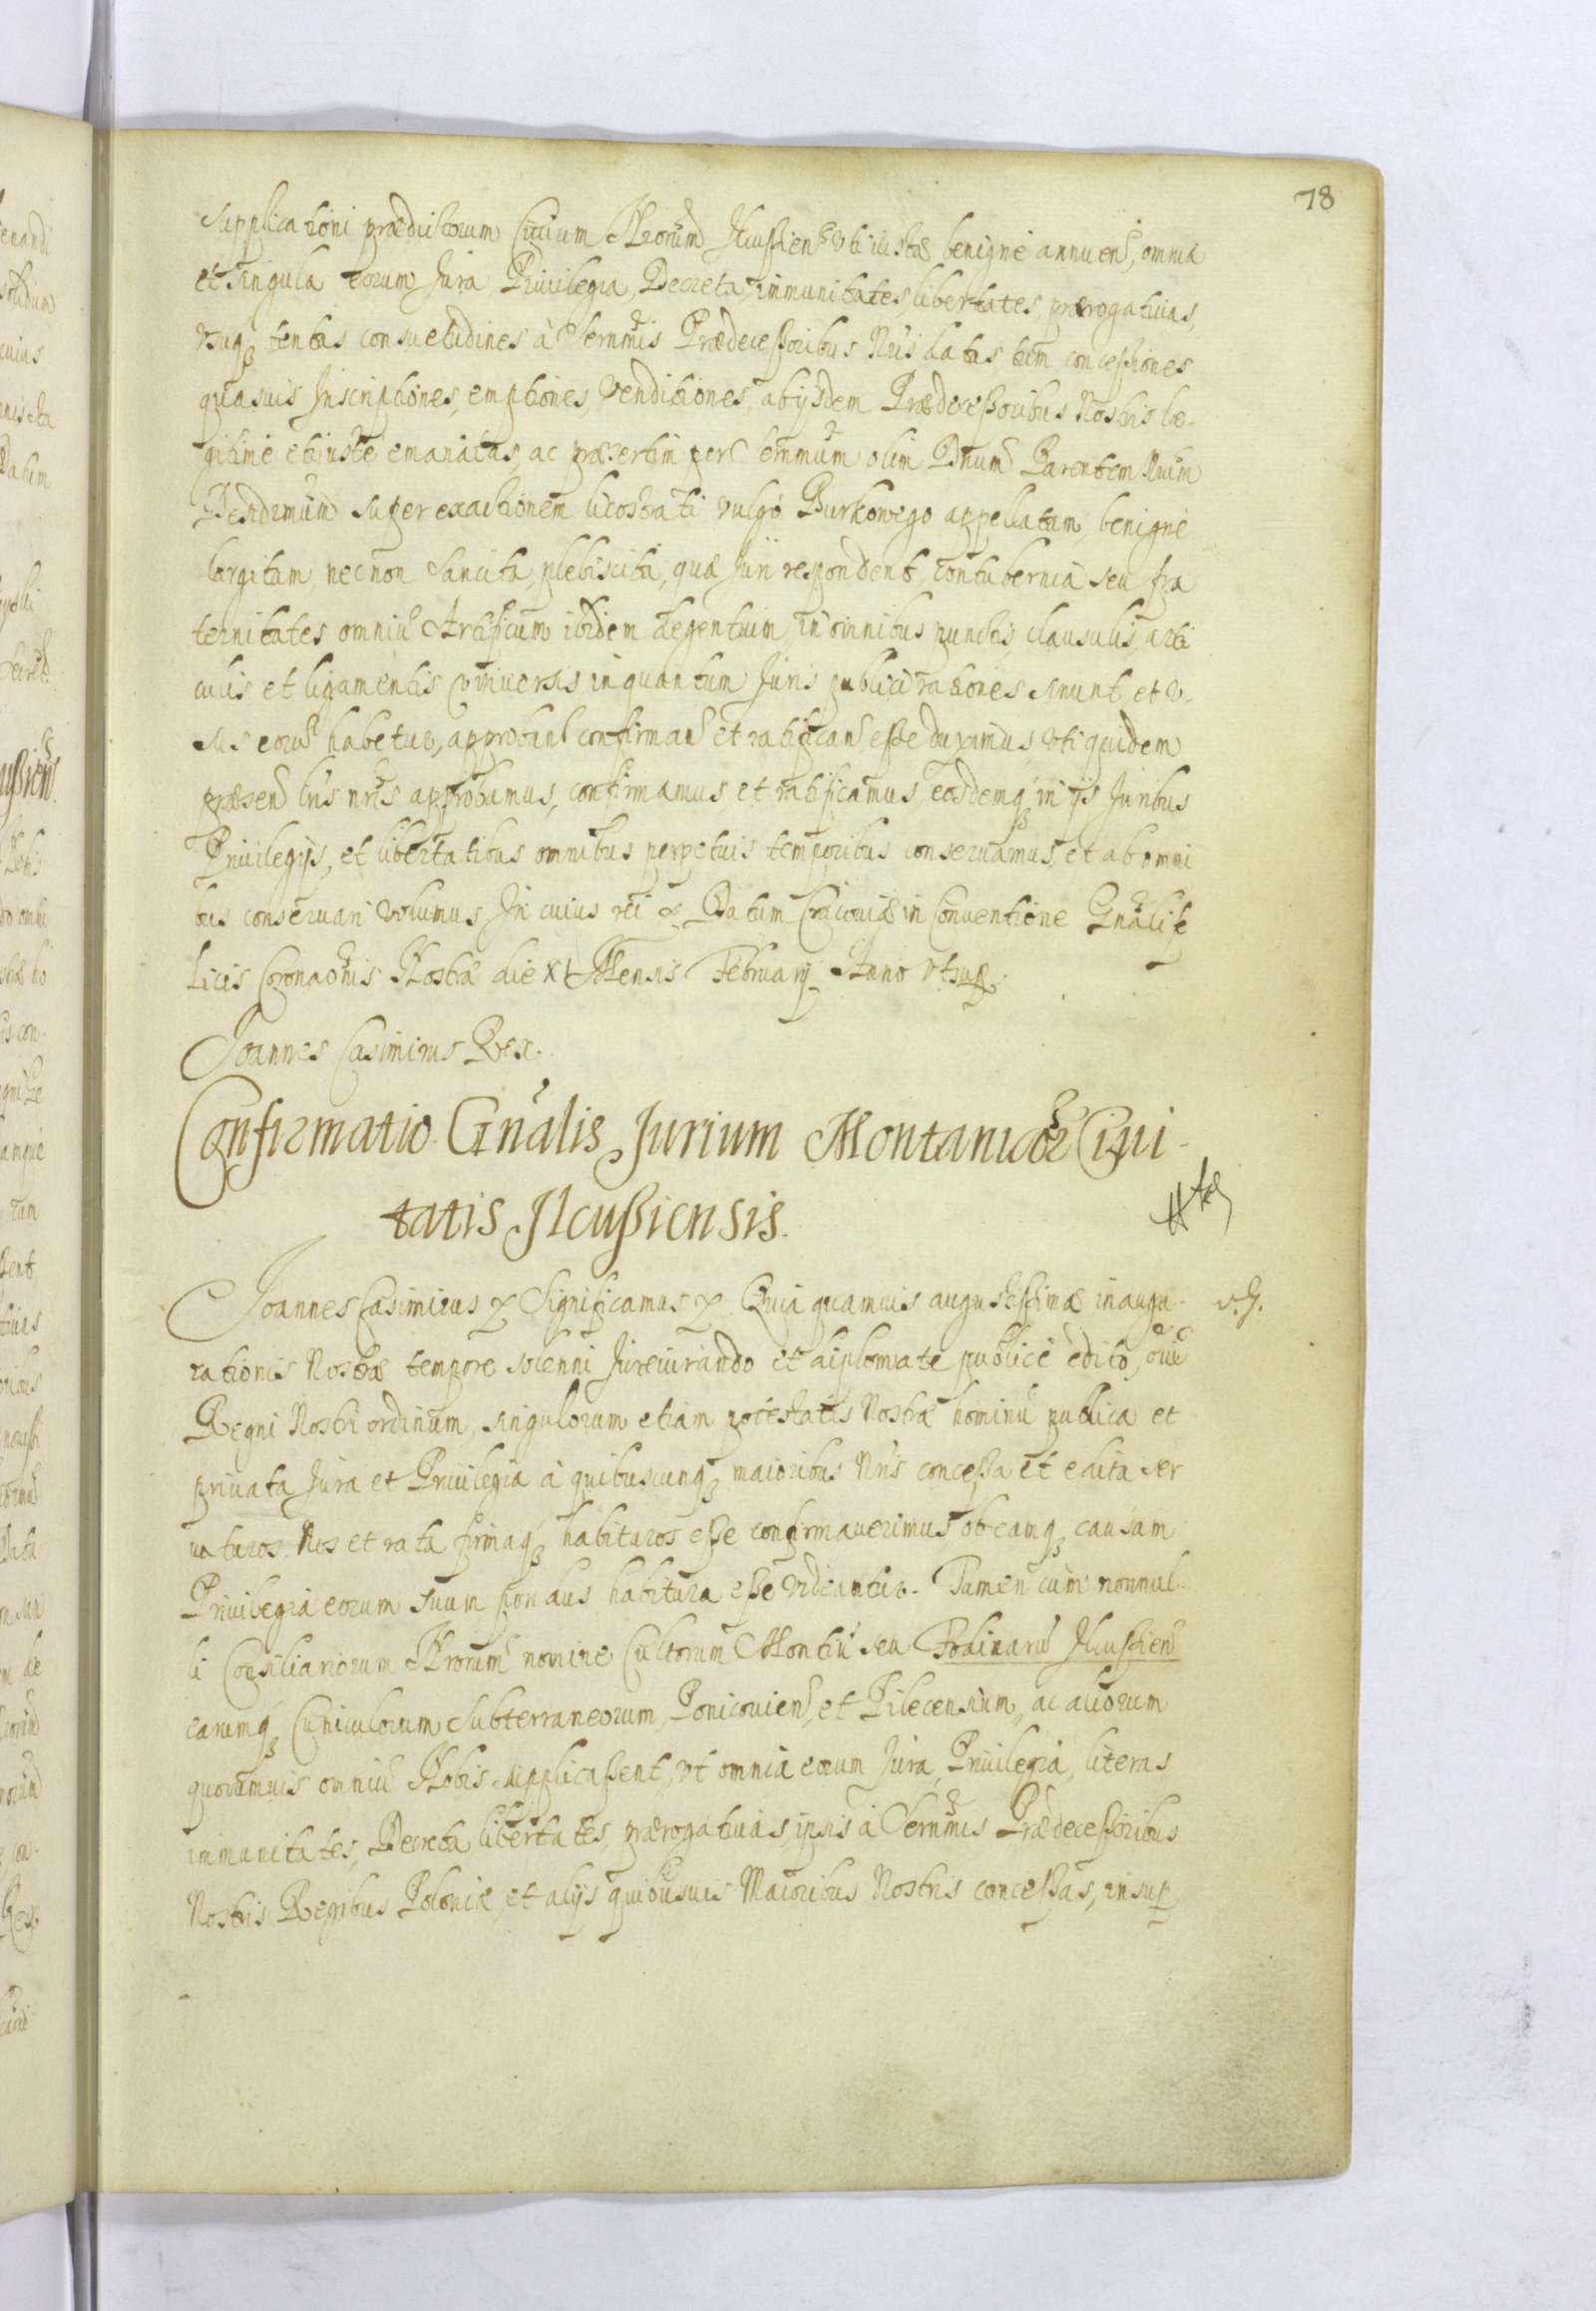 78
Supplicationi prædictorum Civium Nrorum Ilcussien Vti iustæ benigné annuen, omnia
et singula eorum Jura Priuilegia, Decreta, immunitates, libertates, prærogatiuas,
vsuq tentas consuetudines à Sermis Prædecessoribus Nris datas, tum concessiones
quasuis Inscriptiones, emptiones, Venditiones, ab ijsdem Prædecessoribus Nostris le-
gitime et iuste emanatas, ac præsertim per Sermum olim Dnum Parentem Nrum
Desidmum super exactionem licostrati vulgo Burkowego appellatam, benigné
largitam, necnon Sancita, plebiscita, quæ Juri respondent, contubernia seu fra
ternitates omniu Artificum ibidem degentium, in omnibus punctis, clausulis, arti
culis et ligamentis Vniuersis in quantum Juris publici rationes sinunt et v-
sus eorum habetur, approban confirman et ratifican esse duximus, vti quidem
præsen lris nris approbamus, confirmamus et ratificamus, eosdemq in ijs Juribus
Priuilegijs, et libertatibus omnibus perpetuis temporibus conseruamus, et ab omni
bus conseruari Volumus, In cuius rei &. Datum Cracouiæ in Conuentione Gnali fe
licis Coronaonis Nostræ die XI Mensis February Anno vt supra.
Joannes Casimirus Rex.
Confirmatio Gnalis Jurium Montanicor Ciui-
tatis Ilcussiensis.
Joannes Casimirus & Significamus & Quia quamuis augustissimæ inaugu-
rationis Nostræ tempore solenni Jureiurando et diplomate publicé edito, oiu
Regni Nostri ordinum, singulorum etiam potestatis Nostræ hominu publica et
priuata Jura et Priuilegia à quibuscunq maioribus Nris concessa et edita ser
uaturos Nos et rata firmaq habituros esse confirmauerimus ob eamq causam
Priuilegia eorum suum pondus habitura esse Videantur. Tamen cum nonnul-
li Consiliariorum Nrorum nomine Cultorum Montiu seu Fodinaru Ilcussien
earumq Cuniculorum Subterraneorum, Ponicouien, et Pilecensium, ac aliorum
quorumuis omniu Nobis supplicassent, vt omnia eorum Jura, Priuilegia, literas
immunitates, Decreta, libertates, prærogatiuas, ipsis à Sermis Prædecessoribus
Nostris Regibus Poloniæ, et alijs quibusuis Maioribus Nostris concessas, insup